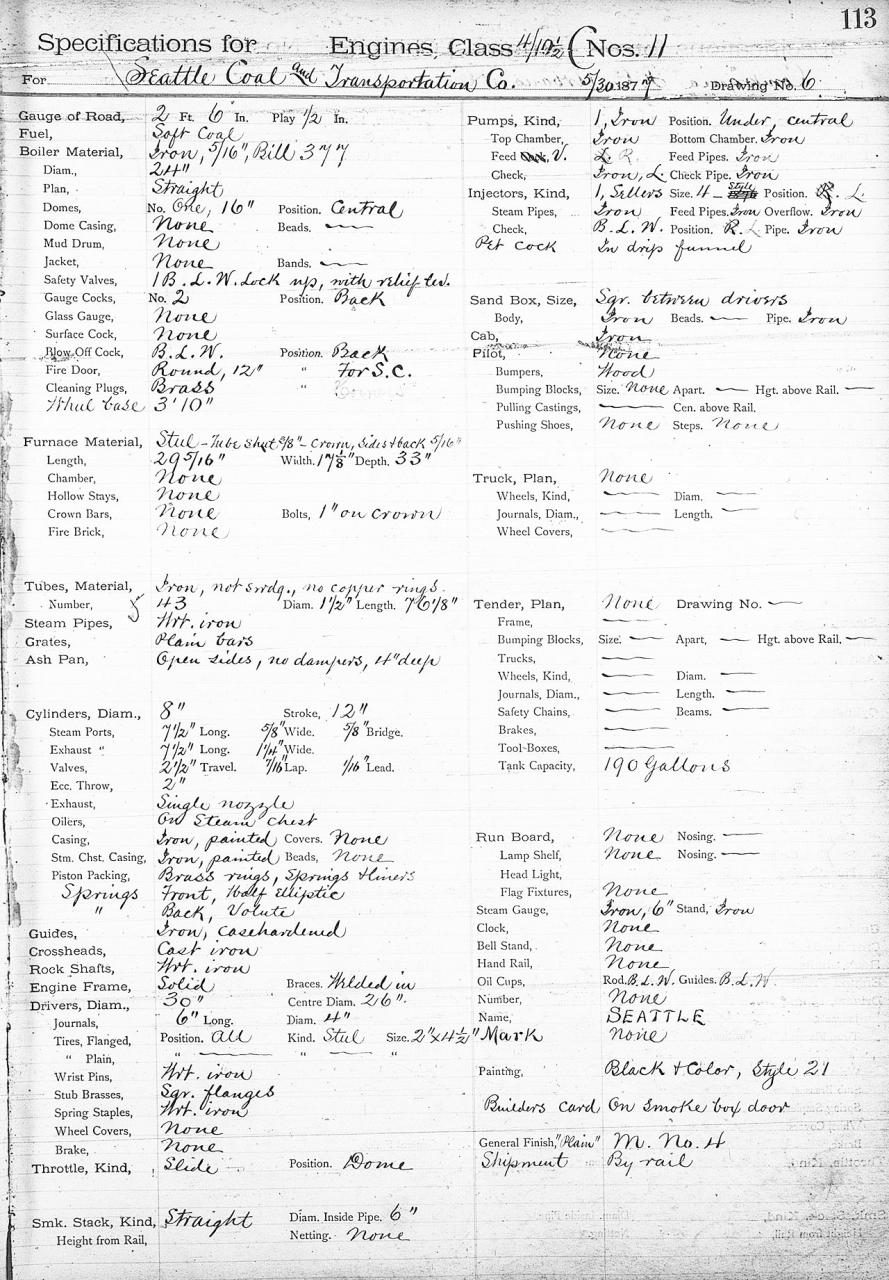 113
Specifications for Engines, Class 4/10½ C Nos. 11
For Seattle Coal and Transportation Co. 5/30 1877 Drawing No. 6
Gauge of Road, 2 Ft. 6 In. Play 1/2 In.
Fuel, Soft Coal
Boiler Material, Iron, 5/16", Bill 377
Diam., 24"
Plan, Straight
Domes, No. One, 16" Position. Central
Dome Casing, None Beads. —
Mud Drum, None
Jacket, None Bands. —
Safety Valves, 1 B. L. W. Lock up, with relief lev.
Gauge Cocks, No. 2 Position. Back
Glass Gauge, None
Surface Cock, None
Blow Off Cock, B. L. W. Position. Back
Fire Door, Round, 12" " For S. C.
Cleaning Plugs, Brass "
Wheel base 3' 10"
Furnace Material, Steel - Tube Sheet 3/8" - Crown, Sides + back 5/16"
Length, 29 5/16" Width. 17 1/8" Depth. 33"
Chamber, None
Hollow Stays, None
Crown Bars, None Bolts, 1" on crown
Fire Brick, None
Tubes, Material, Iron, not swdg., no copper rings.
Number, 43 Diam. 1 1/2" Length. 7' 6 1/8"
Steam Pipes, Wrt. iron
Grates, Plain bars
Ash Pan, Open sides, no dampers, 4" deep
Cylinders, Diam., 8" Stroke, 12"
Steam Ports, 7 1/2" Long. 5/8" Wide. 5/8" Bridge.
Exhaust " 7 1/2" Long. 1 1/4" Wide.
Valves, 2 1/2" Travel. 7/16" Lap. 1/16" Lead.
Ecc. Throw, 2"
Exhaust, Single nozzle
Oilers, On Steam chest
Casing, Iron, painted Covers. None
Stm. Chst. Casing, Iron, painted Beads, None
Piston Packing, Brass rings, Springs + liners
Springs Front, Half Elliptic
" Back, Volute
Guides, Iron, casehardened
Crossheads, Cast iron
Rock Shafts, Wrt. iron
Engine Frame, Solid Braces. Welded in
Drivers, Diam., 30" Centre Diam. 26".
Journals, 6" Long. Diam. 4"
Tires, Flanged, Position. All Kind. Steel Size. 2" x 4 1/2"
" Plain, " — " — "
Wrist Pins, Wrt. iron
Stub Brasses, Sqr. flanges
Spring Staples, Wrt. iron
Wheel Covers, None
Brake, None
Throttle, Kind, Slide Position. Dome
Smk. Stack, Kind, Straight Diam. Inside Pipe. 6"
Height from Rail, Netting. None
Pumps, Kind, 1, Iron Position. Under, central
Top Chamber, Iron Bottom Chamber. Iron
Feed Cock, V. L. R. Feed Pipes. Iron
Check, Iron, L. Check Pipe. Iron
Injectors, Kind, 1, Sellers Size. 4 - Style Position. R. L.
Steam Pipes, Iron Feed Pipes. Iron Overflow. Iron
Check, B. L. W. Position. R. L. Pipe. Iron
Pet cock In drip funnel
Sand Box, Size, Sqr. between drivers
Body, Iron Beads. — Pipe. Iron
Cab, Iron
Pilot, None
Bumpers, Wood
Bumping Blocks, Size. None Apart. — Hgt. above Rail. —
Pulling Castings, — Cen. above Rail.
Pushing Shoes, None Steps. None
Truck, Plan, None
Wheels, Kind, — Diam. —
Journals, Diam., — Length. —
Wheel Covers, —
Tender, Plan, None Drawing No. —
Frame, —
Bumping Blocks, Size. — Apart, — Hgt. above Rail, —
Trucks, —
Wheels, Kind, — Diam. —
Journals, Diam., — Length. —
Safety Chains, — Beams. —
Brakes, —
Tool-Boxes, —
Tank Capacity, 190 Gallons
Run Board, None Nosing. —
Lamp Shelf, None Nosing. —
Head Light,
Flag Fixtures, None
Steam Gauge, Iron, 6" Stand, Iron
Clock, None
Bell Stand, None
Hand Rail, None
Oil Cups, Rod. B. L. W. Guides. B. L. W.
Number, None
Name, SEATTLE
Mark None
Painting, Black + Color, Style 21
Builders Card On Smoke box door
General Finish, "Plain" M. No. 4
Shipment By rail